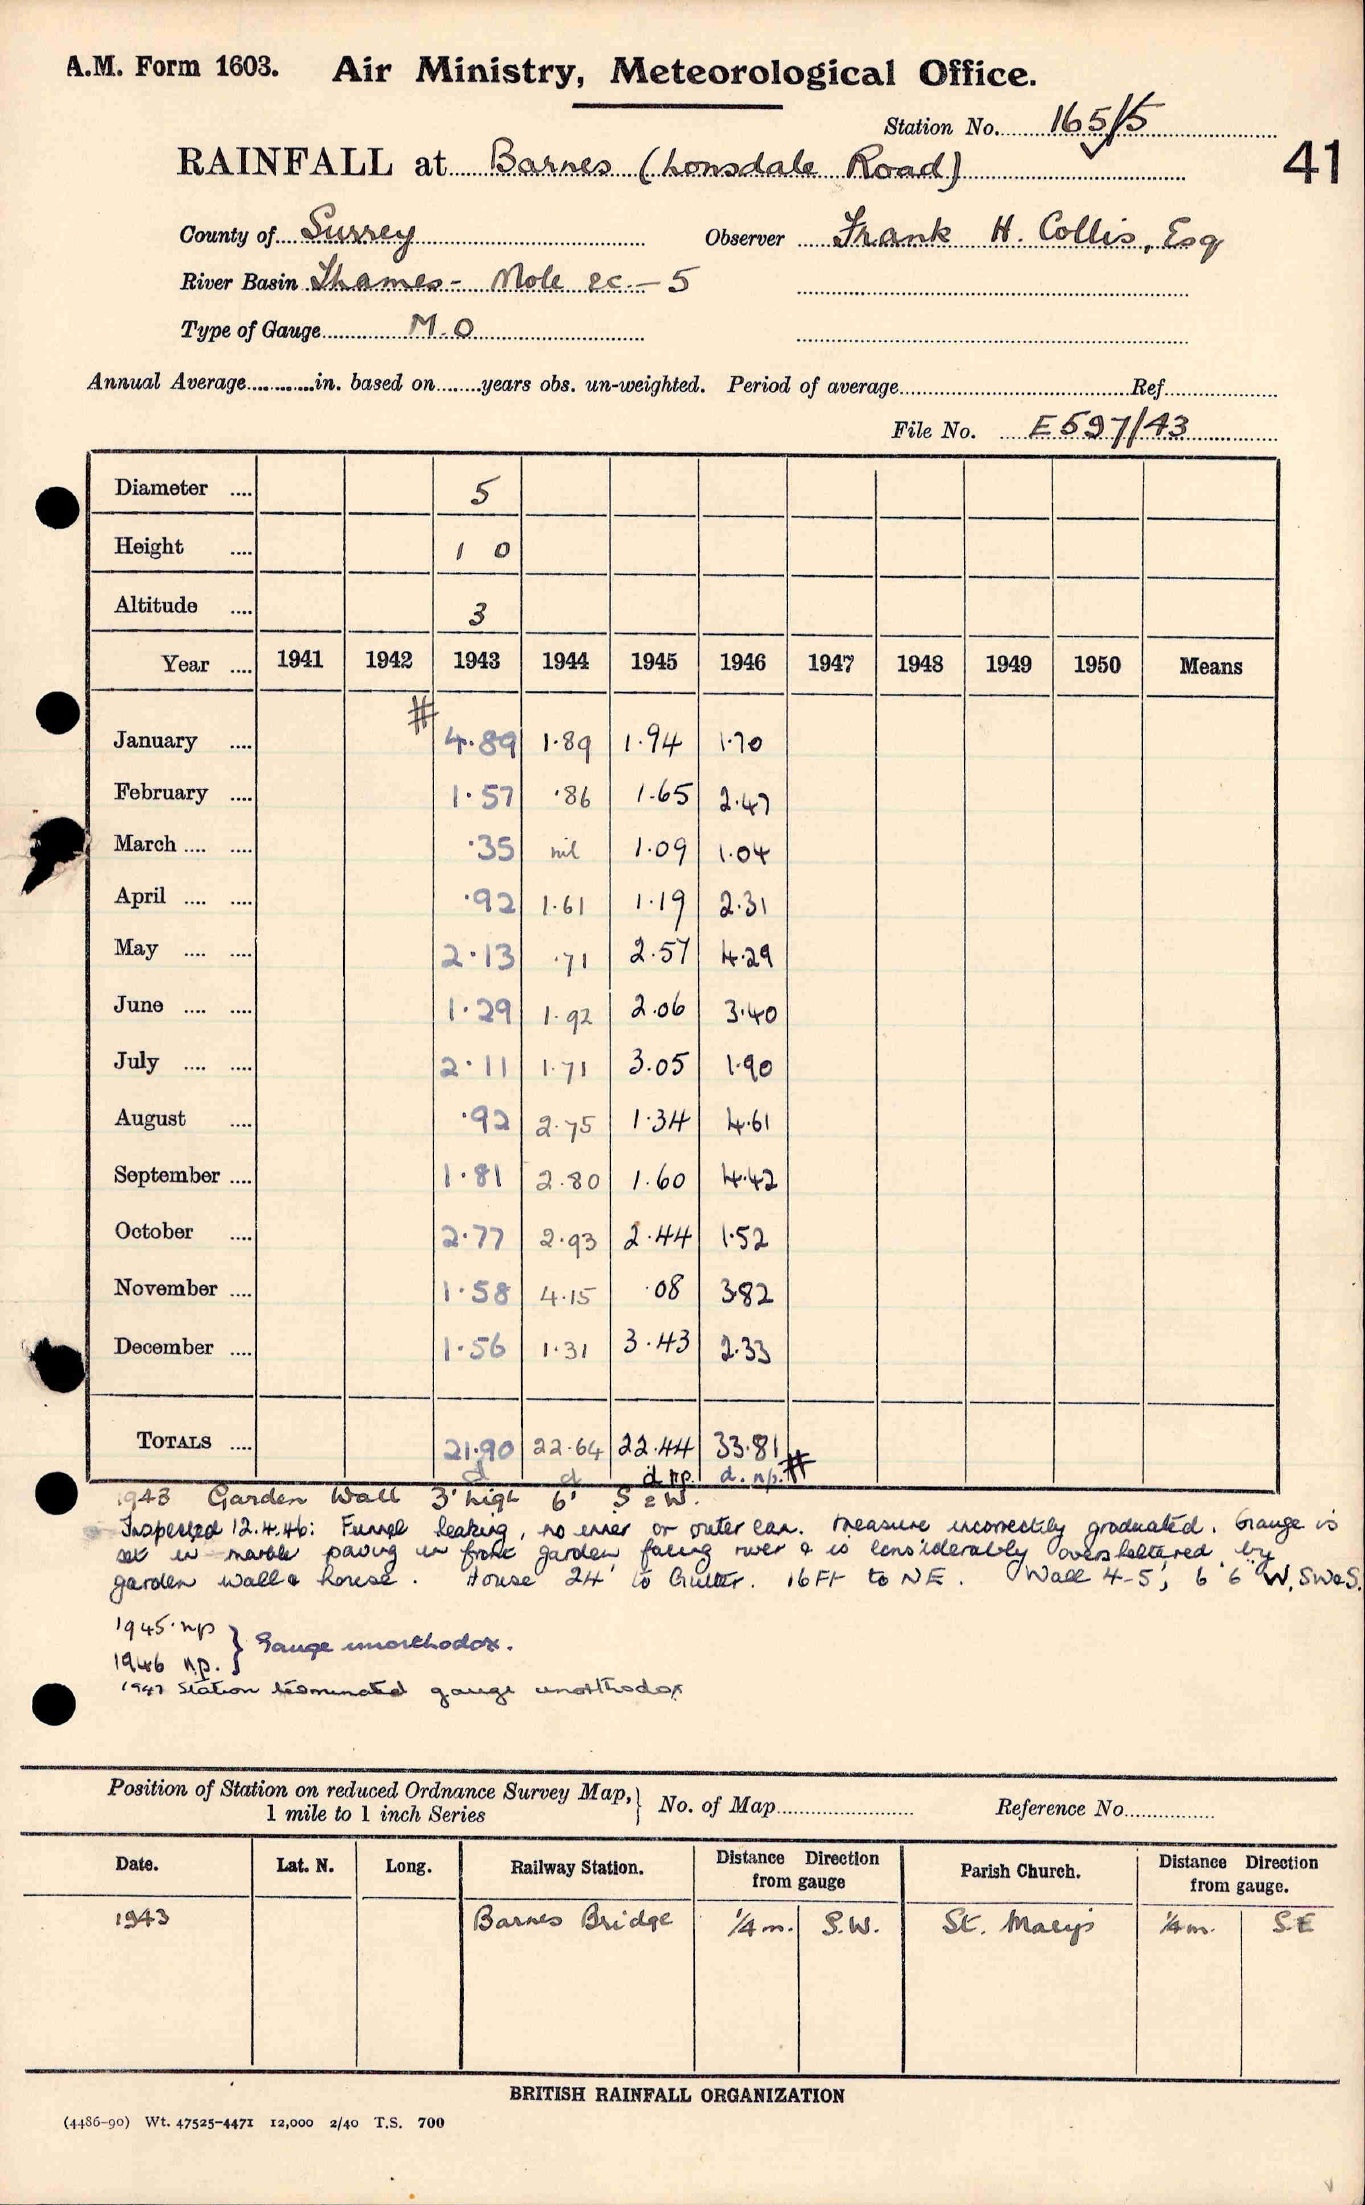 A.M. Form 1603. Air Ministry, Meteorological Office.
Station No. 165/5
RAINFALL at Barnes (Lonsdale Road) 41
County of Surrey Observer Frank H. Collis, Esq
River Basin Thames - Mole &c. - 5
Type of Gauge M.O
Annual Average............in. based on........years obs. un-weighted. Period of average Ref.
File No. E597/43
Diameter .... 5
Height .... 1 0
Altitude .... 3
Year .... 1941 1942 1943 1944 1945 1946 1947 1948 1949 1950 Means
January .... # 4.89 1.89 1.94 1.70
February .... 1.57 .86 1.65 2.47
March .... .... .35 nil 1.09 1.04
April .... .... .92 1.61 1.19 2.31
May .... .... 2.13 .71 2.57 4.29
June .... .... 1.29 1.92 2.06 3.40
July .... .... 2.11 1.71 3.05 1.90
August .... .92 2.75 1.34 4.61
September .... 1.81 2.80 1.60 4.42
October .... 2.77 2.93 2.44 1.52
November .... 1.58 4.15 .08 3.82
December .... 1.56 1.31 3.43 2.33
TOTALS .... 21.90 22.64 22.44 33.81 #
d d d np. d. np.
1943 Garden Wall 3' high 6' S & W.
Inspected 12.4.46: Funnel leaking, no inner or outer can. Measure incorrectly graduated. Gauge is
set in marble paving in front garden facing river & is considerably oversheltered by
garden wall & house. House 24' to Gutter. 16 Ft to NE. Wall 4-5', 6' 6" W, SW & S.
1945 np } Gauge unorthodox.
1946 n.p.
1947 Station terminated gauge unorthodox
Position of Station on reduced Ordnance Survey Map, } No. of Map Reference No.
1 mile to 1 inch Series
Date. Lat. N. Long. Railway Station. Distance Direction from gauge Parish Church. Distance Direction from gauge.
1943 Barnes Bridge 1/4 m. S.W. St. Mary's 1/4 m. S.E
BRITISH RAINFALL ORGANIZATION
(4486-90) Wt. 47525-4471 12,000 2/40 T.S. 700